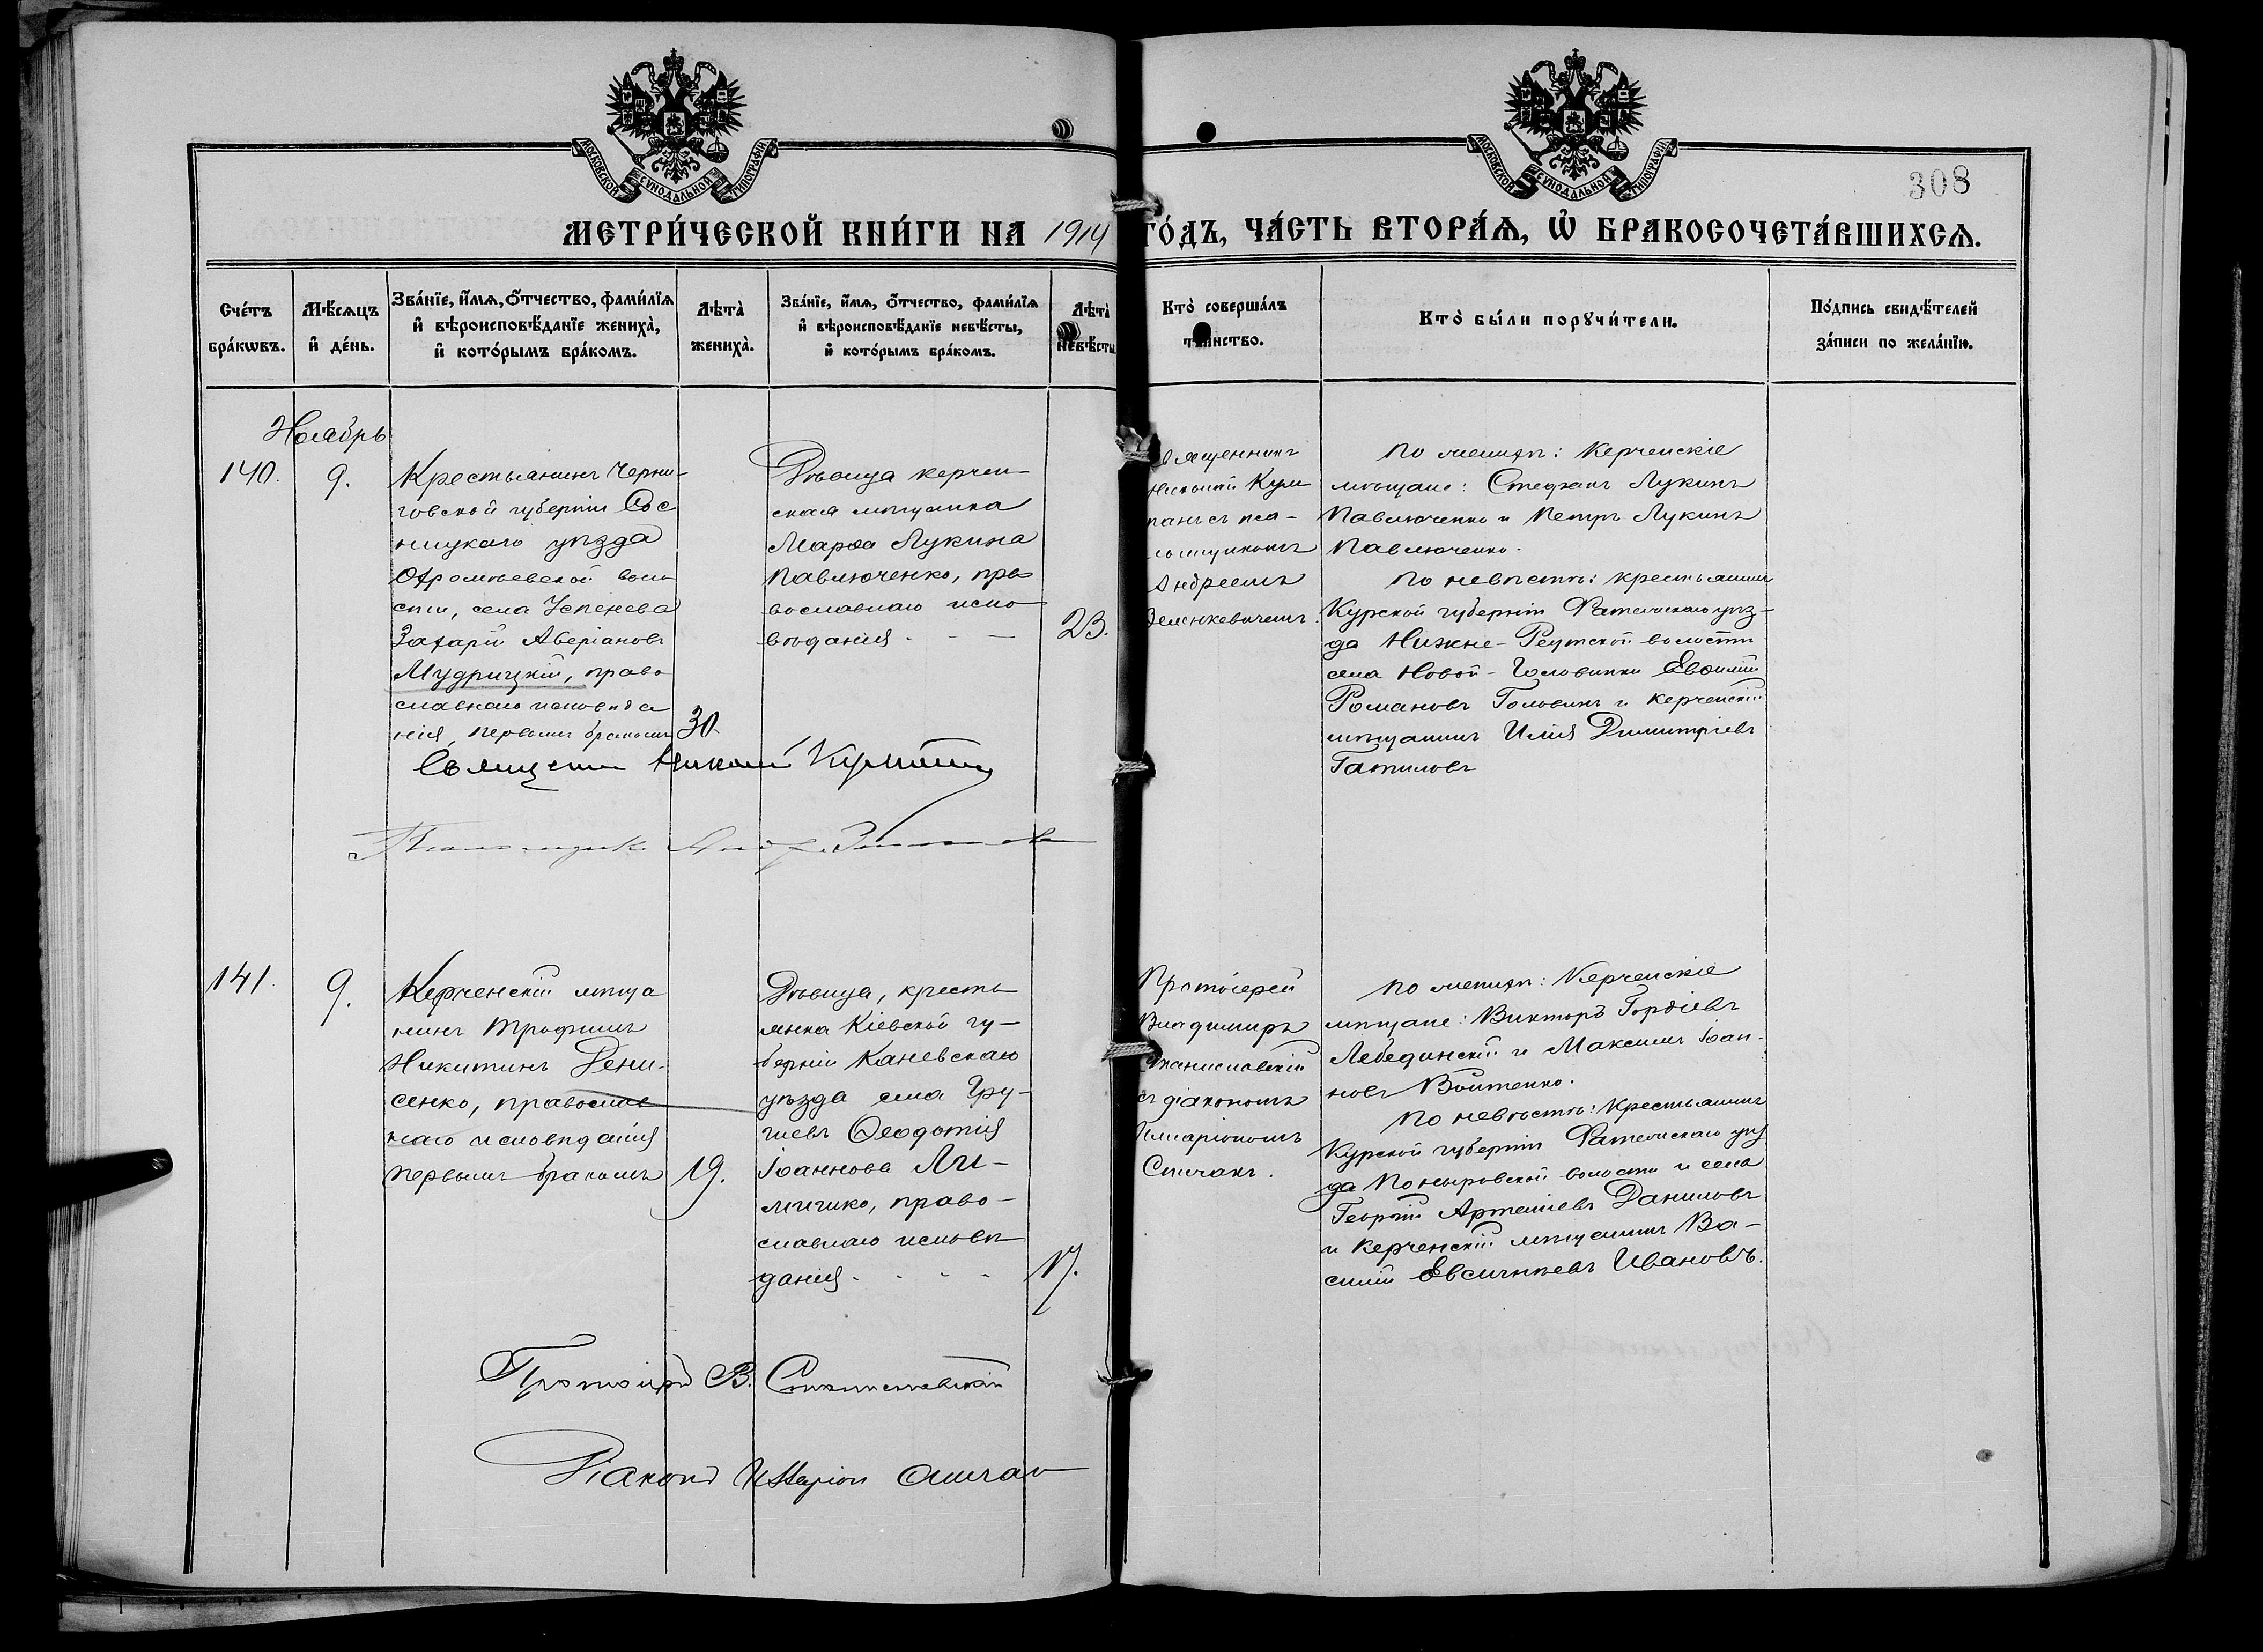 МОСКОВСКОЙ СѴНОДАЛЬНОЙ ТИПОГРАФІИ
МОСКОВСКОЙ СѴНОДАЛЬНОЙ ТИПОГРАФІИ
308
МЕТРИ́ЧЕСКОЙ КНИ́ГИ НА 1914 ГО́ДЪ, ЧА́СТЬ ВТОРА́Ѧ, Ѡ҆ БРАКОСОЧЕТА́ВШИХСѦ.
Сче́тъ бра́кѡвъ.
Мѣ́сѧцъ и҆ де́нь.
Зва́нїе, и҆́мѧ, ѻ҆́тчество, фами́лїѧ и҆ вѣроисповѣ́данїе жениха̀, и҆ кото́рымъ бра́комъ.
Лѣ́та̀ жениха̀.
Зва́нїе, и҆́мѧ, ѻ҆́тчество, фами́лїѧ и҆ вѣроисповѣ́данїе невѣ́сты, и҆ кото́рымъ бра́комъ.
Лѣ́та̀ невѣ́сты
Кто̀ соверша́лъ та́инство.
Кто̀ бы́ли порꙋчи́тели.
По́дпись свидѣ́телей за́писи по жела́нїю.
Ноябрь
140.
9.
Крестьянинъ Черни-
говской губерніи Сос
ницкаго уѣзда
воло
сти, села Успенева
Захарій Аверіановъ
Мудрицкій, право
славнаго исповѣда
нія, первымъ бракомъ
30.
Дѣвица керчен-
ская мѣщанка
Марѳа Лукина
Павлюченко, пра
вославнаго испо
вѣданія - - -
23.
Священникъ
Николай Кум
панъ съ пса-
ломщикомъ
Андреемъ
Зеленкевичемъ.
По женихѣ: Керченскіе
мѣщане: Стефанъ Лукинъ
Павлюченко и Петръ Лукинъ
Павлюченко.
По невѣстѣ: крестьянинъ
Курской губерніи Фатежскаго уѣз-
да Нижне-Реутской волости
села Новой-Головинки Евѳимій
Романовъ Головинъ и керченскій
мѣщанинъ Илія Димитріевъ
Гатиловъ
Священникъ Николай Кумпанъ
Псаломщикъ Андр.
141.
9.
Керченскій мѣща
нинъ Трофимъ
Никитинъ Дени-
сенко, православ
наго исповѣданія
первымъ бракомъ
19.
Дѣвица, кресть
янка Кіевской гу-
берніи Каневскаго
уѣзда села Гру-
шевъ Ѳеодотія
Іоаннова
право-
славнаго исповѣ
данія - - - -
17.
Протоіерей
Владиміръ
Станиславскій
съ діакономъ
Иларіономъ
Спичакъ.
По женихѣ: Керченскіе
мѣщане: Викторъ Гордіевъ
Лебединскій и Максимъ Іоан-
новъ Войтенко.
По невѣстѣ: крестьянинъ
Курской губерніи Фатежскаго уѣз
да Поныровской волости и села
Георгій Артеміевъ Даниловъ
и керченскій мѣщанинъ Ва-
силій Евсигнѣевъ Ивановъ.
Протоіерей В. Станиславскій
Діаконъ Илларіон Спичак